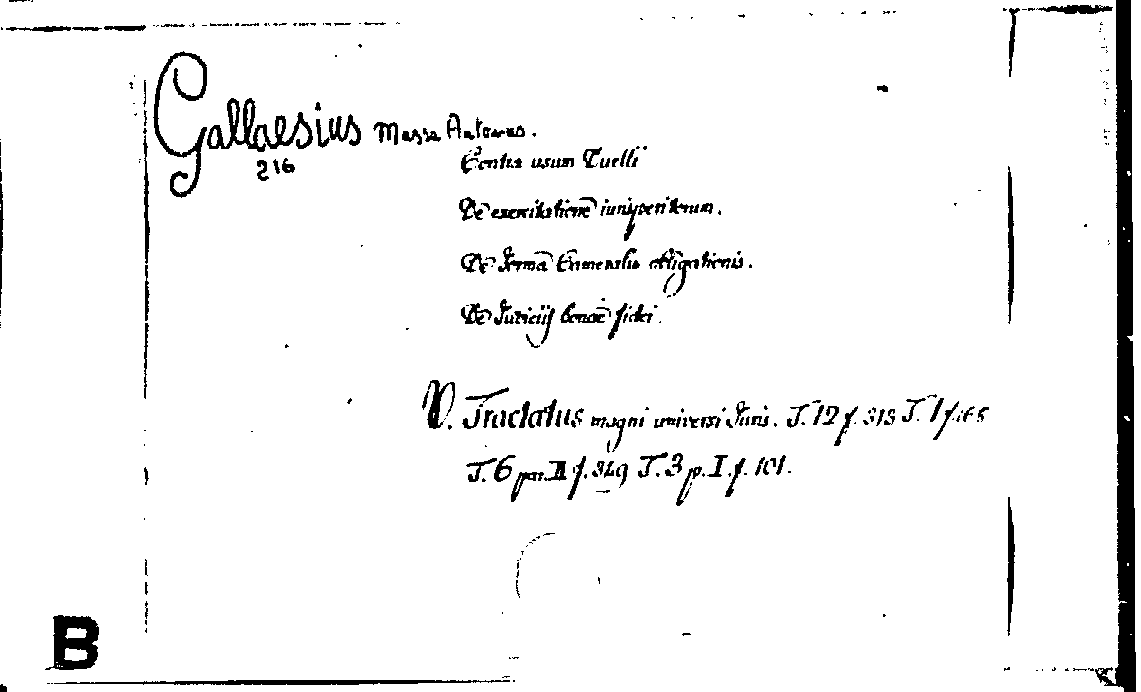 Gallaesius Massa Antonius.
216
Contra usum Duelli
De exercitatione iurisperitorum.
De forma Cameralis obligationis.
De Iudicijs bonae fidei.
V. Tractatus magni universi Iuris. T. 12 f. 313 T. 1 f. 165
T. 6 par. II f. 349 T. 3 p. I. f. 101.
B